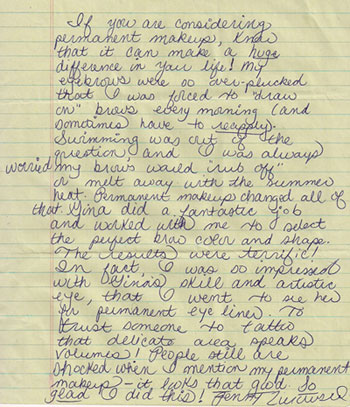 If you are considering
permanent makeup, know
that it can make a huge
difference in your life! My
eyebrows were so over-plucked
that I was forced to "draw
on" brows every morning (and
sometimes have to reapply.
Swimming was out of the
question and I was always
worried my brows would "rub off"
or melt away with the summer
heat. Permanent makeup changed all of
that. Gina did a fantastic job
and worked with me to select
the perfect brow color and shape.
The results were terrific!
In fact, I was so impressed
with Gina's skill and artistic
eye, that I went to see her
for permanent eye liner. To
trust someone to tattoo
that delicate area speaks
volumes! People still are
shocked when I mention my permanent
makeup - it looks that good. So
glad I did this!